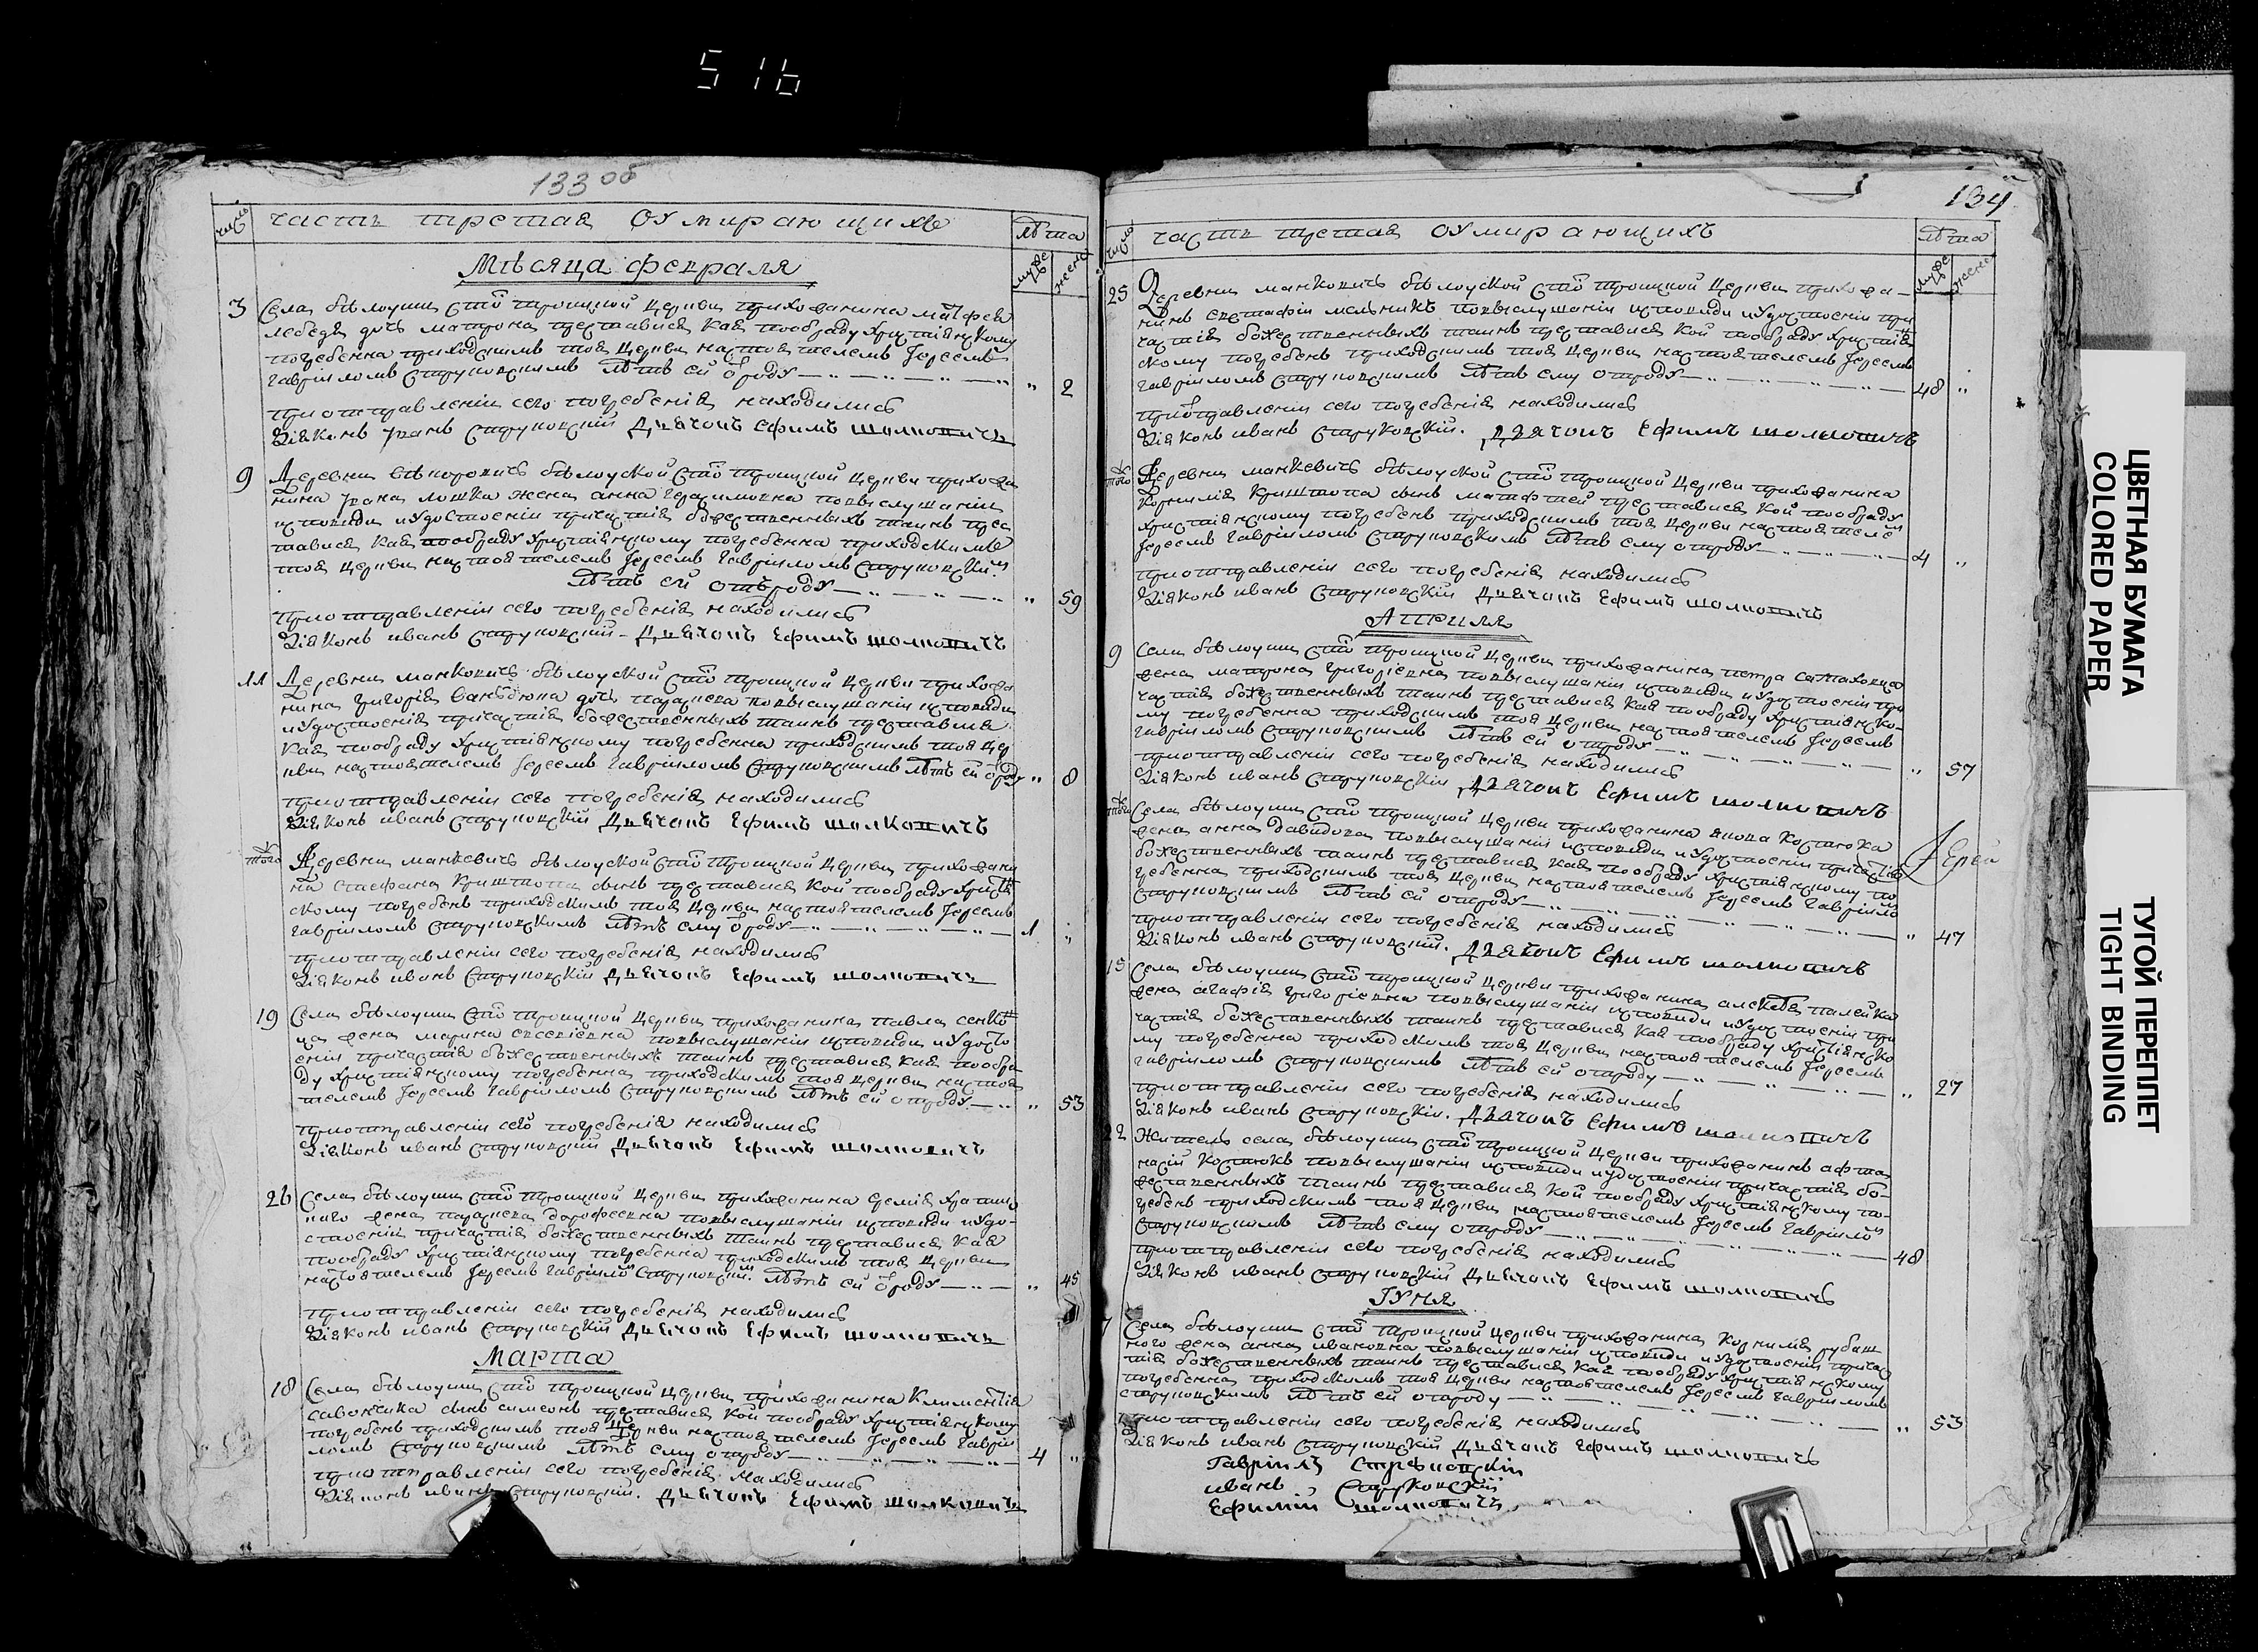 516
133 об
число
часть третая оумирающихъ
лѣта
муже
жене
Мѣсяца февраля
3 Села бѣлоуши стŏ троицкой церкви прихожанина матфея
лебедя дочь матрона преставися кая пообряду христіянскому
погребенна приходскимъ тоя церкви настоятелемъ Іереемъ
Гавріиломъ Струковскимъ лѣтъ ей ѿроду
" 2
приотправленіи сего погребенія находились
Діяконъ Іванъ Струковскій Дьячокъ Ефимъ Шолковичъ
9 Деревни бѣлоуской стŏ троицкой церкви прихожа
нина Івана лошка жена анна Герасимовна повыслушаніи
исповѣди иУдостоеніи причастія божественныхъ таинъ прес
тавися кая пообряду христіянскому погребенна приходскимъ
тоя церкви настоятелемъ Іереемъ Гавріиломъ Струковскимъ
лѣтъ ей отъроду
" 59
приотправленіи сего погребенія находились
Діяконъ иванъ Струковскій Дьячокъ Ефимъ Шолковичъ
11 Деревни манковичъ бѣлоуской стŏ троицкой церкви прихожа
нина Григорія дочь параскева повыслушаніи исповѣди
иУдостоенія причастія божественныхъ таинъ преставися
кая пообряду христіянскому погребенна приходскимъ тоя цер
кви настоятелемъ Іереемъ Гавріиломъ Струковскимъ лѣтъ ей ѿроду " 8
приотправленіи сего погребенія находились
Діяконъ иванъ Струковскій Дьячокъ Ефимъ Шолковичъ
тогож Деревни манкевичъ бѣлоуской стŏ троицкой церкви прихожани
на стефана криштопа сынъ преставися кой пообряду христіян
скому погребенъ приходскимъ тоя церкви настоятелемъ Іереемъ
Гавріиломъ Струковскимъ лѣтъ ему ѿроду
1 "
приотправленіи сего погребенія находились
Діяконъ иванъ Струковскій Дьячокъ Ефимъ Шолковичъ
19 Села бѣлоуши стŏ троицкой церкви прихожанина павла сенко
жена марина евсеевна повыслушаніи исповѣди иУдосто
еніи причастія божественныхъ таинъ преставися кая пообря
ду христіянскому погребенна приходскимъ тоя церкви настоя
телемъ Іереемъ Гавріиломъ Струковскимъ лѣтъ ей отроду
" 53
приотправленіи сего погребенія находились
Діяконъ иванъ Струковскій Дьячокъ Ефимъ Шолковичъ
26 Села бѣлоуши стŏ троицкой церкви прихожанина
жена параскева дорофеевна повыслушаніи исповѣди иУдо-
стоеніи причастія божественныхъ таинъ преставися кая
пообряду христіянскому погребенна приходскимъ тоя церкви
настоятелемъ Іереемъ Гавріиломъ Струковскимъ лѣтъ ей ѿроду
" 45
приотправленіи сего погребенія находились
Діяконъ иванъ Струковскій Дьячокъ Ефимъ Шолковичъ
Марта
18 Села бѣлоуши стŏ троицкой церкви прихожанина Климентія
савончика сынъ симеонъ преставися кой пообряду христіянскому
погребенъ приходскимъ тоя церкви настоятелемъ Іереемъ Гавріи
ломъ Струковскимъ лѣтъ ему отроду
4 "
приотправленіи сего погребенія находились
Діяконъ иванъ Струковскій. Дьячокъ Ефимъ Шолковичъ
134
число
часть третая оумирающихъ
лѣта
муже
жене
25 Деревни манковичъ бѣлоуской стŏ троицкой церкви прихожа-
нинъ евстафій мельникъ повыслушаніи исповѣди иУдостоеніи при
частія божественныхъ таинъ преставися кой пообряду христіян
скому погребенъ приходскимъ тоя церкви настоятелемъ Іереемъ
Гавріиломъ Струковскимъ лѣтъ ему отроду
48 "
приѿправленіи сего погребенія находились
Діяконъ иванъ Струковскій. Дьячокъ Ефимъ Шолковичъ
тогож Деревни манкевичъ бѣлоуской стŏ троицкой церкви прихожанина
Корнилія криштопа сынъ матфтей преставися кой пообряду
христіянскому погребенъ приходскимъ тоя церкви настоятелем
Іереемъ Гавріиломъ Струковскимъ лѣтъ ему отроду
4 "
приотправленіи сего погребенія находились
Діяконъ иванъ Струковскій Дьячокъ Ефимъ Шолковичъ
Априля
9 Села бѣлоуши стŏ троицкой церкви прихожанина петра
жена матрона Григоріевна повыслушаніи исповѣди иУдостоеніи при
частія божественныхъ таинъ преставися кая пообряду христіянско-
му погребенна приходскимъ тоя церкви настоятелемъ Іереемъ
Гавріиломъ Струковскимъ лѣтъ ей отроду
" 57
приотправленіи сего погребенія находились
Діяконъ иванъ Струковскій Дьячокъ Ефимъ Шолковичъ
тогож Села бѣлоуши стŏ троицкой церкви прихожанина якова костюка
жена анна давидова повыслушаніи исповѣди иУдостоеніи причастія
божественныхъ таинъ преставися кая пообряду христіянскому по
гребенна приходскимъ тоя церкви настоятелемъ Іереемъ Гавріилом
Струковскимъ лѣтъ ей отроду
" 47
Іерей
приотправленіи сего погребенія находились
Діяконъ иванъ Струковскій. Дьячокъ Ефимъ Шолковичъ
15 Села бѣлоуши стŏ троицкой церкви прихожанина алексѣя палейка
жена агафія Григоріевна повыслушаніи исповѣди иУдостоеніи при
частія божественныхъ таинъ преставися кая пообряду христіянско
му погребенна приходскимъ тоя церкви настоятелемъ Іереемъ
Гавріиломъ Струковскимъ лѣтъ ей отроду
" 27
приотправленіи сего погребенія находились
Діяконъ иванъ Струковскій. Дьячокъ Ефимъ Шолковичъ
22 Житель села бѣлоуши стŏ троицкой церкви прихожанинъ афта
насій костюкъ повыслушаніи исповѣди иудостоеніи причастія бо-
жественныхъ таинъ преставися кой пообряду христіянскому по-
гребенъ приходскимъ тоя церкви настоятелемъ Іереемъ Гавріилом
Струковскимъ лѣтъ ему отроду
48
приотправленіи сего погребенія находились
Діяконъ иванъ Струковскій Дьячокъ Ефимъ Шолковичъ
Іуня
7 Села бѣлоуши стŏ троицкой церкви прихожанина Корнилія рубаш
ного жена анна ивановна повыслушаніи исповѣди иУдостоеніи причас
тія божественныхъ таинъ преставися кая пообряду христіянскому
погребенна приходскимъ тоя церкви настоятелемъ Іереемъ Гавріиломъ
Струковскимъ лѣтъ ей отроду
" 53
приотправленіи сего погребенія находились
Діяконъ иванъ Струковскій Дьячокъ Ефимъ Шолковичъ
Гавріилъ Струковскій
иванъ Струковскій
Ефимій Шолковичъ
ЦВЕТНАЯ БУМАГА
COLORED PAPER
ТУГОЙ ПЕРЕПЛЕТ
TIGHT BINDING